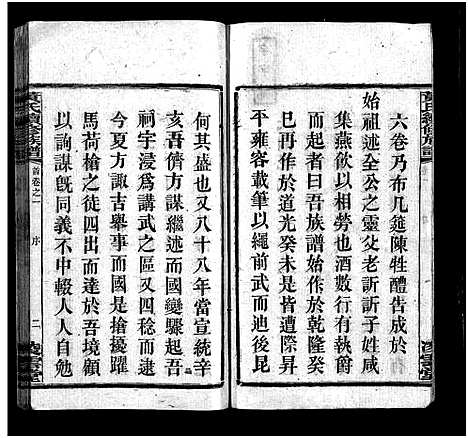 六卷乃布几筵陳牲醴告成於
始祖述全公之靈父老訢訢子姓咸
集燕飲以相勞也酒數行有執爵
而起者曰吾族譜始作於乾隆癸
巳續於道光癸未是皆遭際昇
平雍容載筆以繩前武而迪後昆
何其盛也又八十八年當宣統辛
亥吾儕方謀繼述而國變驟起吾
祠宇浸爲講武之區又四稔而逮
今夏方諏吉舉事而國是搶擾躍
馬荷槍之徒四出而達於吾境顧
以詢謀旣同義不中輟人人自勉
黃氏續修族譜
首卷之一
序
二